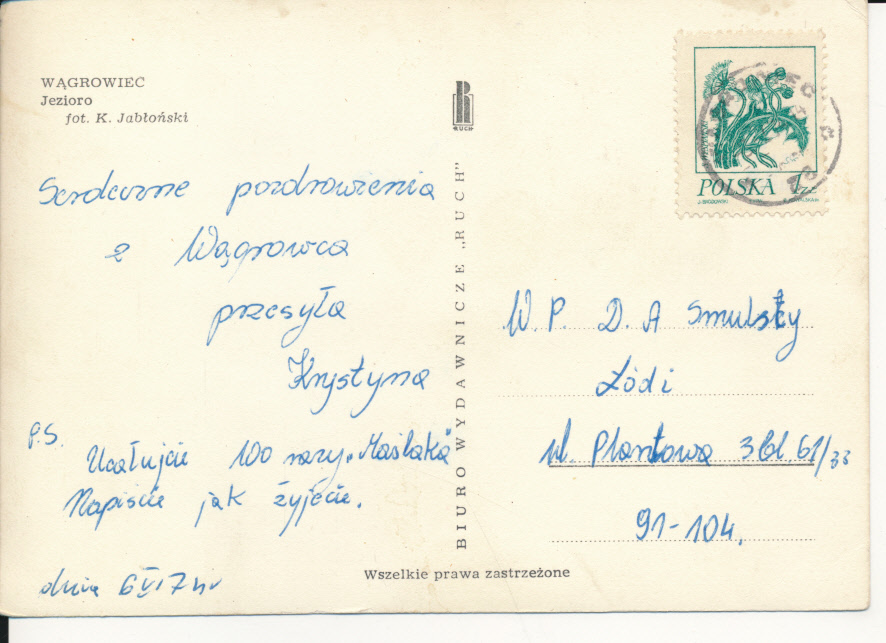 WĄGROWIEC
Jezioro
fot. K. Jabłoński
Serdeczne pozdrowienia
z Wągrowca
przesyła
Krystyna
P.S.
Ucałujcie 100 razy „Maślaka"
Napiscie jak żyjecie.
dnia 6 VI 74r
RUCH
BIURO WYDAWNICZE „RUCH"
Wszelkie prawa zastrzeżone
POLSKA 1 ZŁ
W. P. D. A Smulscy
Łódź
ul. Plantowa 3 bl. 61/33
91-104.